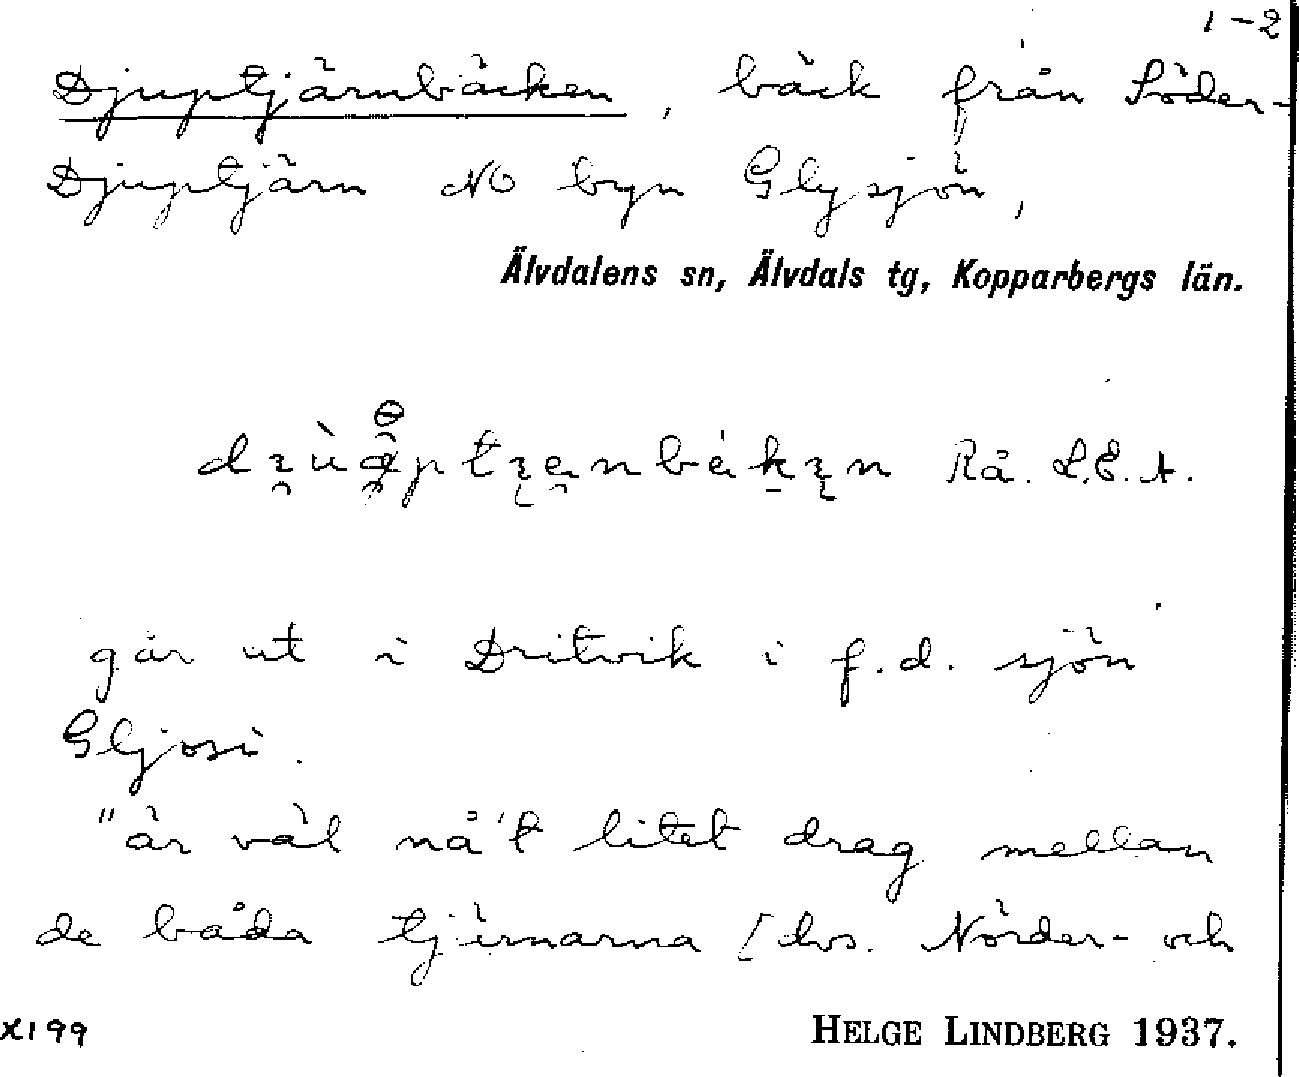 1-2
Djuptjärnbäcken, bäck från Söder-
Djuptjärn NO byn Glysjön,
Älvdalens sn, Älvdals tg, Kopparbergs län.
Rå. L.E.A.
går ut i Dritvik i f.d. sjön
Gljosi.
"är väl nå't litet drag mellan
de båda tjärnarna [dvs. Nörder- och
X199
HELGE LINDBERG 1937.